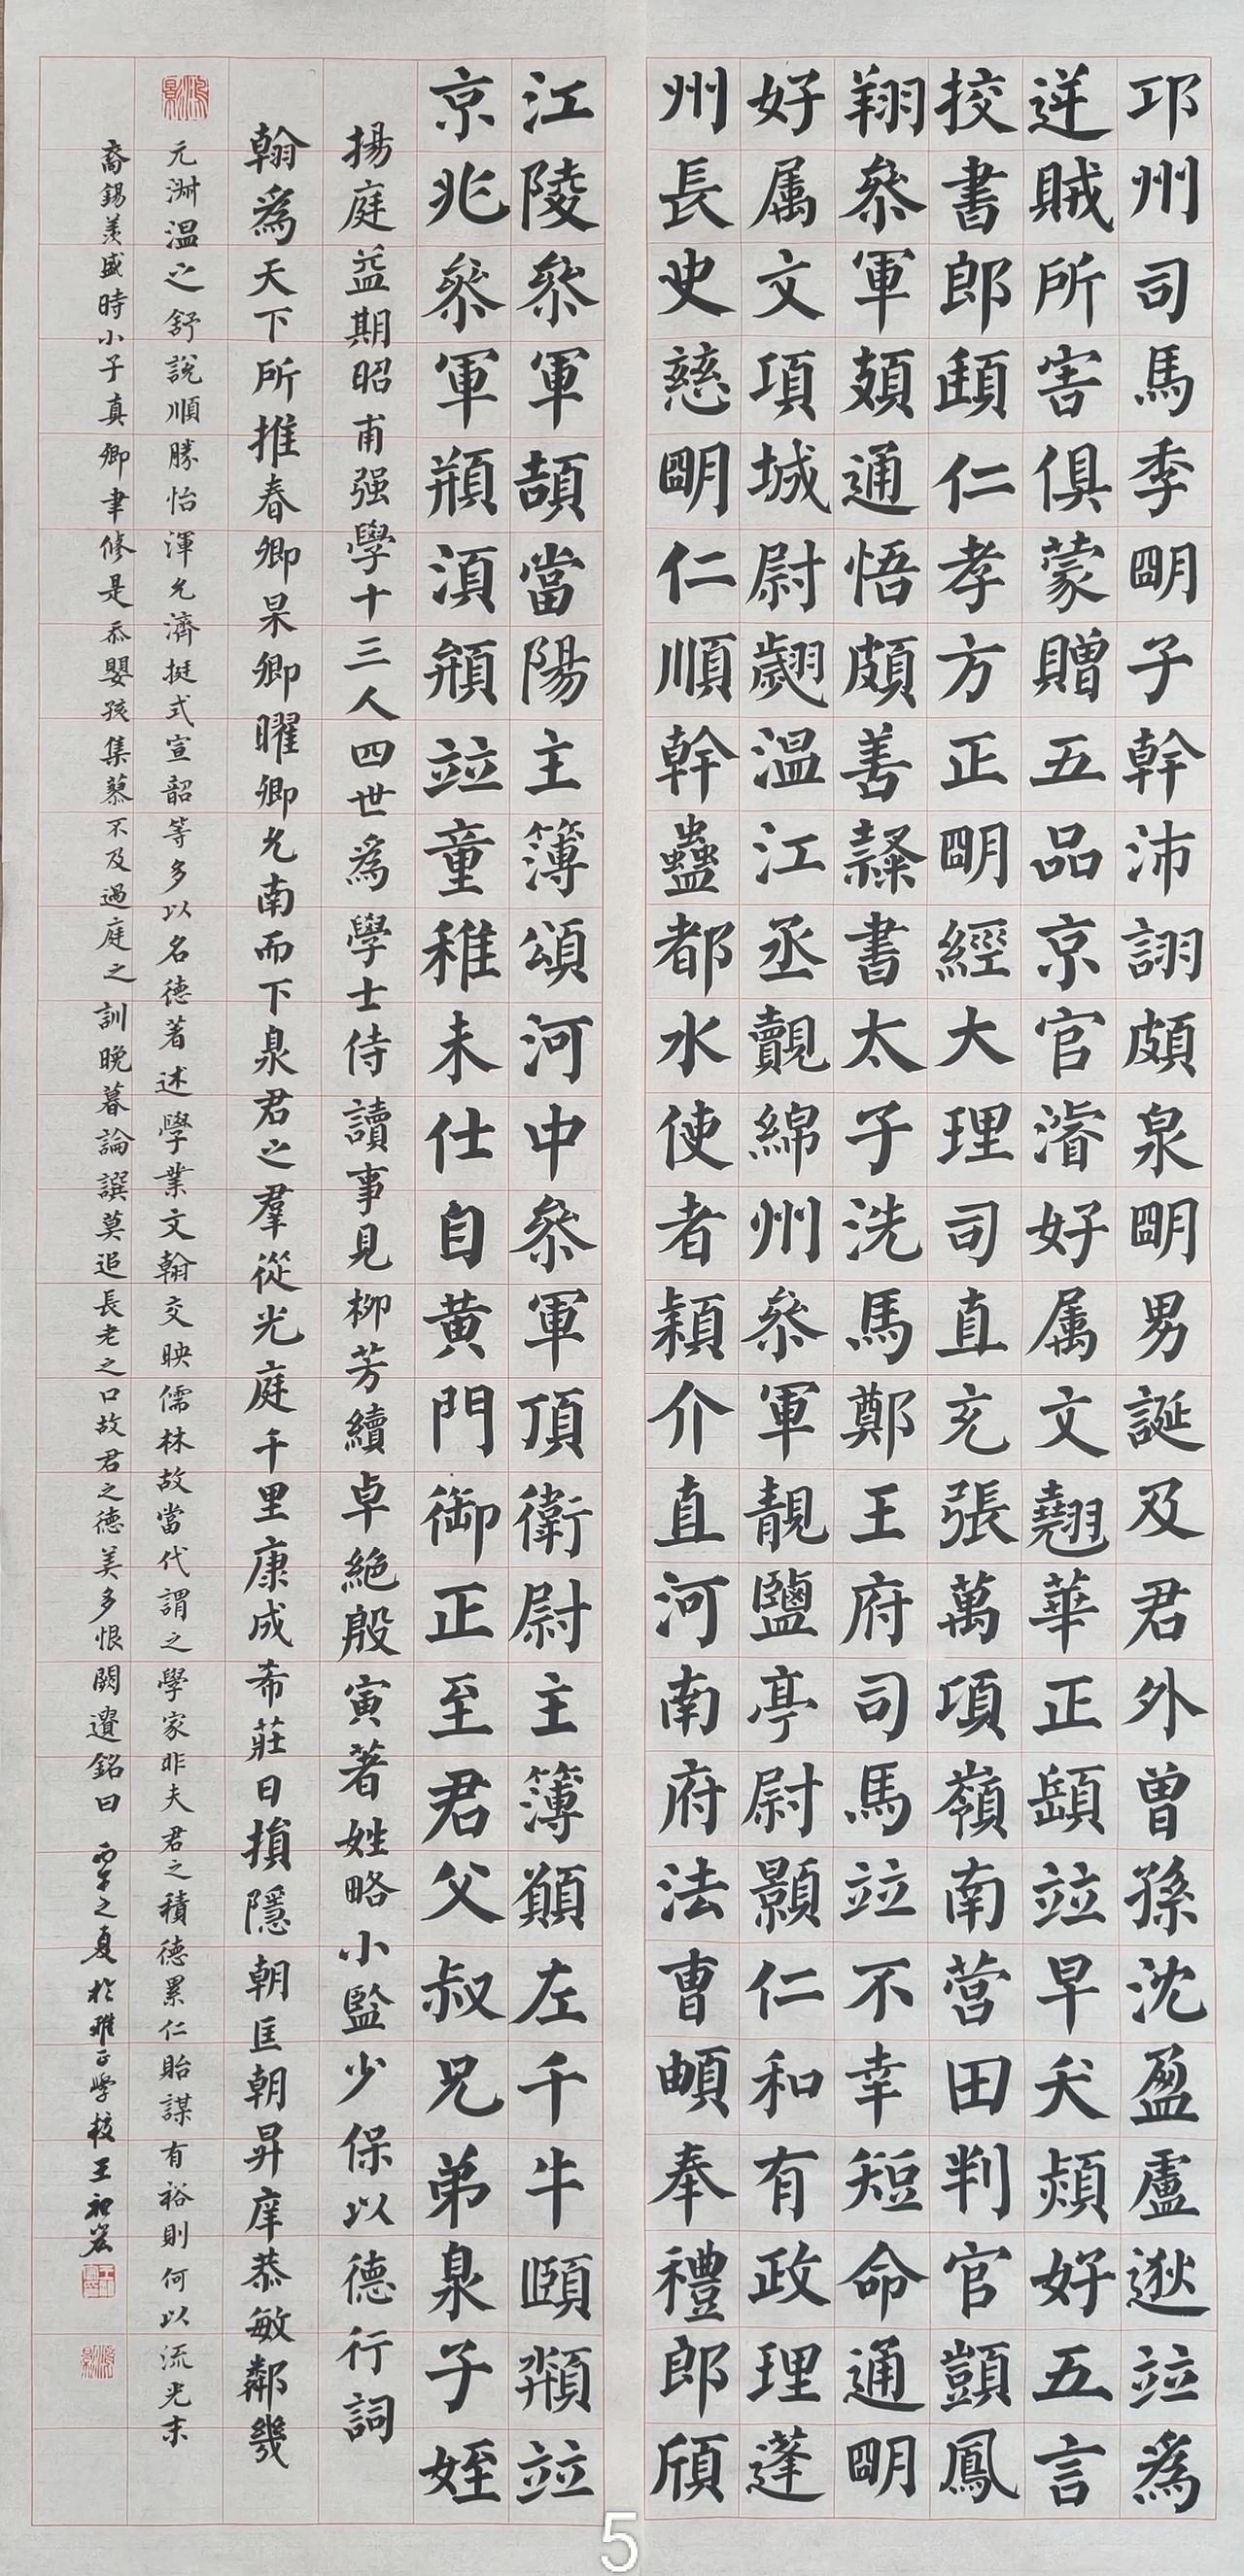 邛州司馬季明子幹沛詡頗泉明男誕及君外曾孫沈盈盧逖竝為
逆賊所害俱蒙贈五品京官濬好属文翹華正頣竝早夭熲好五言
挍書郎頲仁孝方正明經大理司直充張萬項嶺南營田判官顗鳳
翔叅軍頍通悟頗善隸書太子洗馬鄭王府司馬竝不幸短命通明
好属文項城尉翽温江丞覿綿州叅軍靚鹽亭尉顥仁和有政理蓬
州長史慈明仁順幹蠱都水使者穎介直河南府法曹頔奉禮郎頎
江陵叅軍頡當陽主簿頌河中叅軍頂衛尉主簿願左千牛頤頩竝
京兆叅軍頩湏頯竝童稚未仕自黄門御正至君父叔兄弟泉子姪
揚庭益期昭甫强學十三人四世為學士侍讀事見柳芳續卓絶殷寅著姓略小監少保以德行詞
翰為天下所推春卿杲卿曜卿允南而下泉君之羣從光庭千里康成希莊日損隱朝匡朝昇庠恭敏鄰幾
元淋温之舒說順勝怡渾允濟挺式宣韶等多以名德著述學業文翰交映儒林故當代謂之學家非夫君之積德累仁貽謀有裕則何以流光末
裔錫羡盛時小子真卿聿修是忝嬰孩集蓼不及過庭之訓晚暮論譔莫追長老之口故君之德美多恨闕遺銘曰 之夏於雅正學校王
5